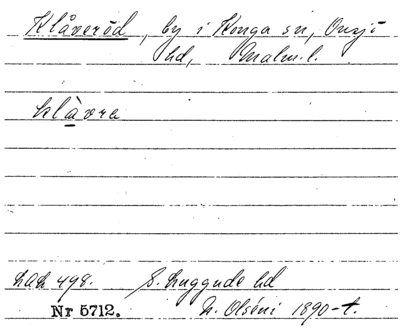 Klåveröd, by i Konga sn, Onsjö
hd, Malm. l.
klàvra
LAL 498. S. Luggude hd
Nr 5712. N. Olséni 1890-t.